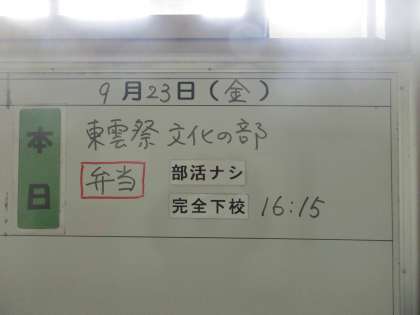 9月23日(金)
本日
東雲祭 文化の部
弁当 部活ナシ
完全下校 16:15